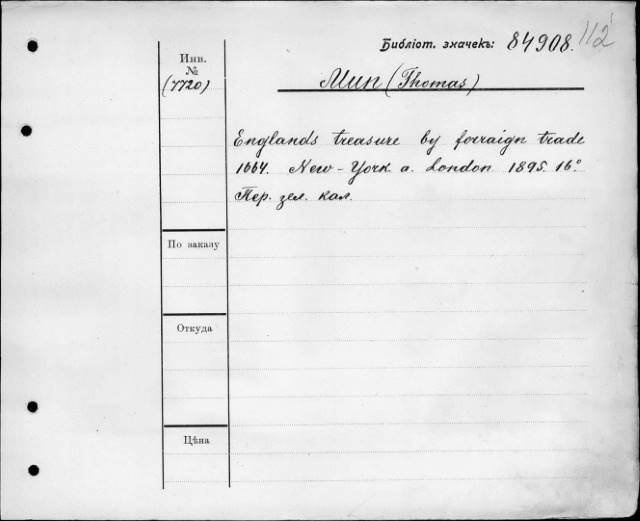 Библіот. значекъ: 84908. 112
Инв.
№
(7720)
Mun (Thomas)
Englands treasure by forraign trade
1664. New-York a. London 1895. 16°
Пер. зел. кал.
По заказу
Откуда
Цѣна